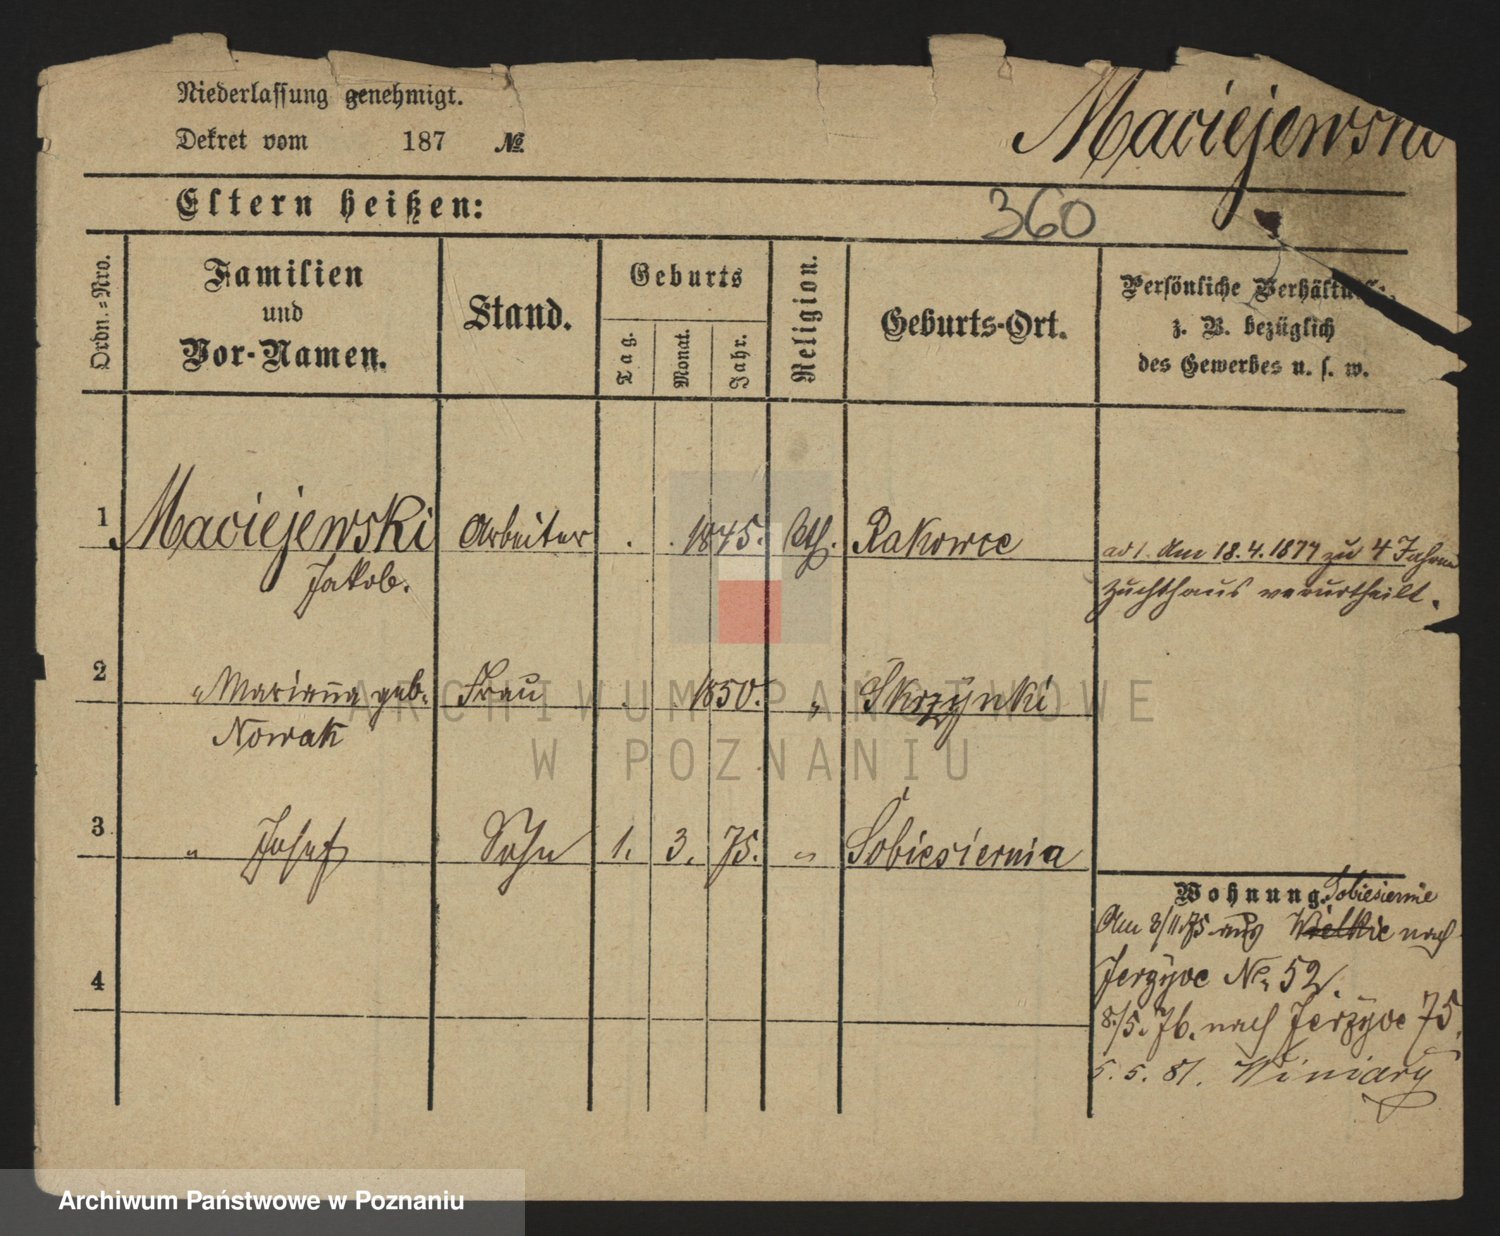 Niederlassung genehmigt.
Dekret vom 187 No.
Maciejewski
Eltern heißen:
360
Ordn.-Nro.
Familien
und
Vor-Namen.
Stand.
Geburts
Tag.
Monat.
Jahr.
Religion.
Geburts-Ort.
Persönliche
z. B. bezüglich
des Gewerbes u. s. w.
1 Maciejewski Arbeiter . . 1845. kth. Rakowce ad 1. Am 18.4.1877 zu 4 Jahren
Jakob. Zuchthaus verurtheilt.
2 " Marianna geb. Frau . . 1850. " Skrzynki
Nowak
3 " Josef Sohn 1. 3. 75. " Sobiesiernia
Wohnung. Sobiesiernie
Am 8/11.75 aus Wielkie nach
4 Jerzyce No. 52.
8./5. 76. nach Jerzyce 75.
5. 5. 81. Winiary
ARCHIWUM PAŃSTWOWE
W POZNANIU
Archiwum Państwowe w Poznaniu